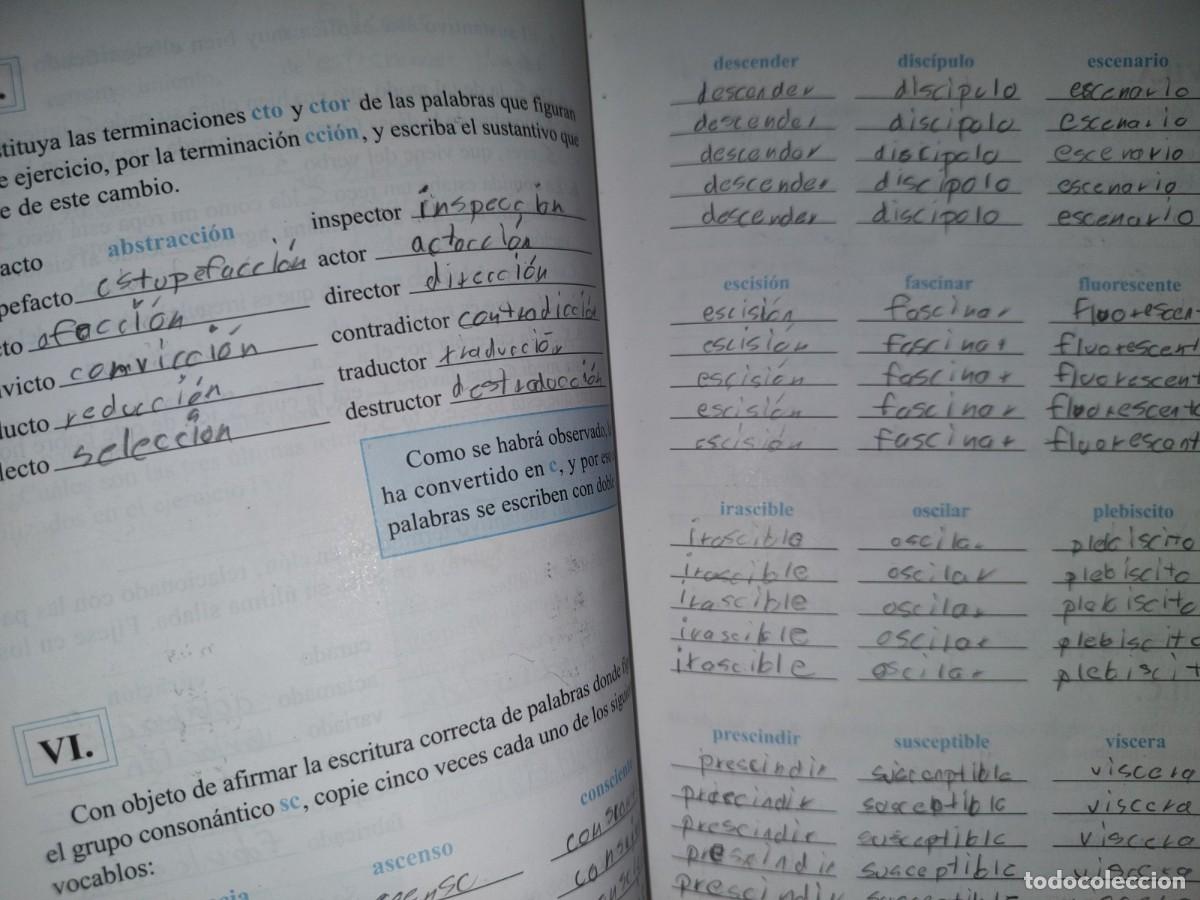 stituya las terminaciones cto y ctor de las palabras que figuran
e ejercicio, por la terminación cción, y escriba el sustantivo que
e de este cambio.
acto abstracción
pefacto estupefacción
cto afacción
nvicto convicción
ducto reducción
lecto selección
inspector inspección
actor actocción
director dirección
contradictor contradicción
traductor traducción
destructor destroducción
Como se habrá observado, l
ha convertido en c, y por es
palabras se escriben con doble
VI.
Con objeto de afirmar la escritura correcta de palabras donde fig
el grupo consonántico sc, copie cinco veces cada uno de los siguien
vocablos:
ascenso consciente
descender discípulo escenario
descender discípulo escenario
descender discípolo escenario
descendor discípolo escenario
descender discípolo escenario
descender discípolo escenario
escisión fascinar fluorescente
escisión fascinar fluorescen
escisión fascinar fluorescent
escisión fascinar fluorescent
escisión fascinar fluorescent
escisión fascinar fluorescent
irascible oscilar plebiscito
irascible oscilar plebiscito
irascible oscilar plebiscito
irascible oscilar plebiscito
irascible oscilar plebiscito
irascible oscilar plebiscit
prescindir susceptible víscera
prescindir susceptible víscera
prescindir susceptible víscera
prescindir susceptible víscera
prescindir susceptible víscera
prescindir
todocoleccion